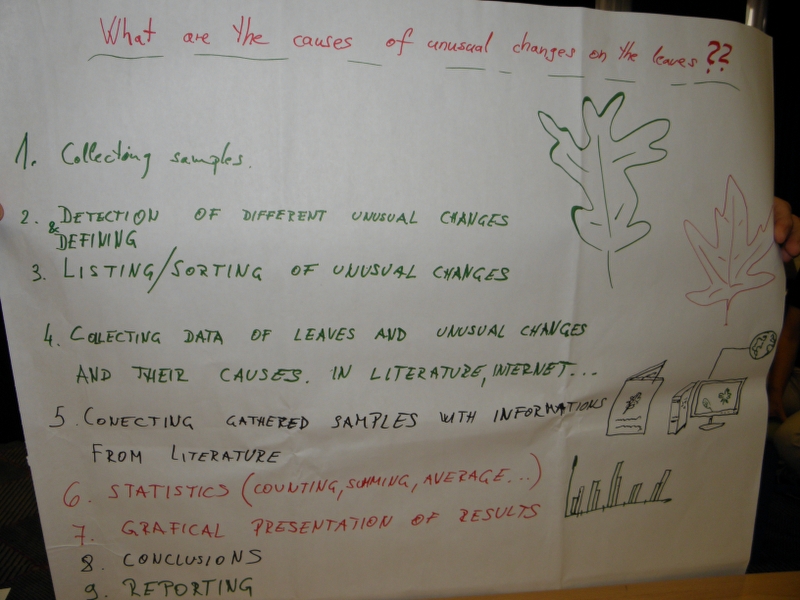 What are the causes of unusual changes on the leaves??
1. Collecting samples.
2. DETECTION OF DIFFERENT UNUSUAL CHANGES
& DEFINING
3. LISTING/SORTING OF UNUSUAL CHANGES
4. COLLECTING DATA OF LEAVES AND UNUSUAL CHANGES
AND THEIR CAUSES. IN LITERATURE, INTERNET...
5. CONECTING GATHERED SAMPLES WITH INFORMATIONS
FROM LITERATURE
6. STATISTICS (COUNTING, SUMMING, AVERAGE...)
7. GRAFICAL PRESENTATION OF RESULTS
8. CONCLUSIONS
9. REPORTING